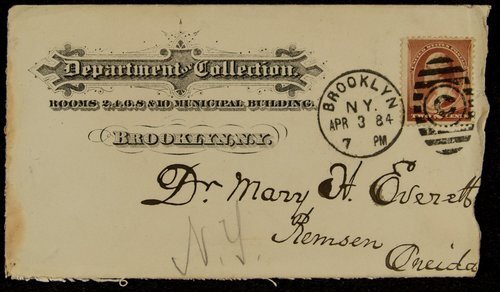 Department of Collection.
ROOMS 2, 4, 6, 8 & 10 MUNICIPAL BUILDING.
BROOKLYN, N.Y.
BROOKLYN
N.Y.
APR 3 84
7 PM
TWO CENTS
Dr. Mary H. Everett
Remsen
Oneida
N.Y.